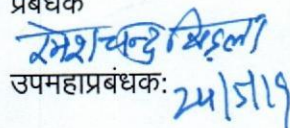 प्रबंधक
रमेशचन्द्र बिड़ला
उपमहाप्रबंधक:
24/5/19